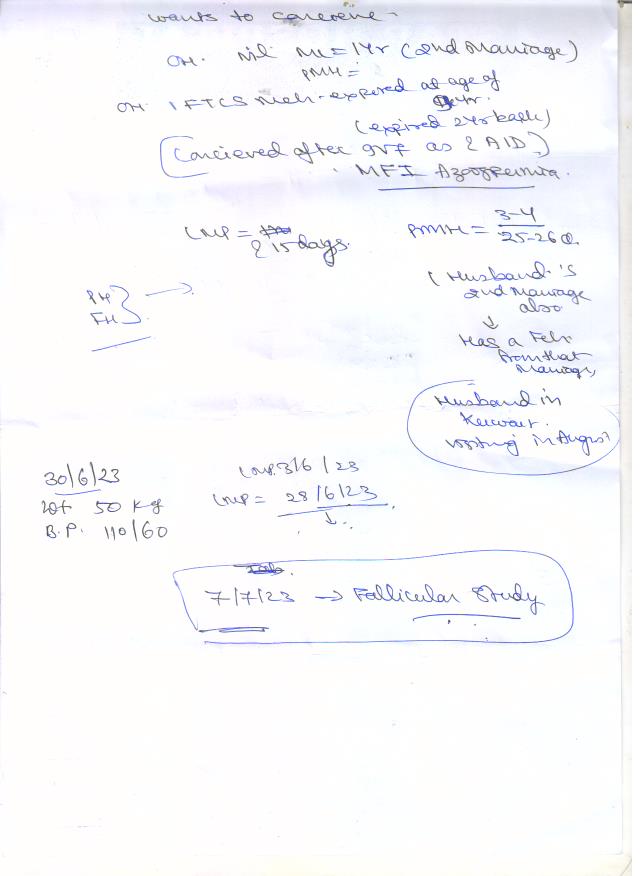 wants to concieve -
OH. Nil ML = 1Yr (2nd Marriage)
PMH =
OH. 1 FTCS Meh - expired at age of
yr.
(expired 2Yr back)
(Concieved after IVF as AID)
MFI Azoospermia.
LMP = 15 days.
PMH = 3-4
25-26
(Husband's
2nd Marriage
also
↓
Has a Feh
from that
Marriage,
PH
FH } →
Husband in
Kuwait.
visiting in August
30/6/23
wt 50 Kg
B.P. 110/60
LMP. 3/6/23
LMP = 28/6/23
↓
7/7/23 → Follicular Study